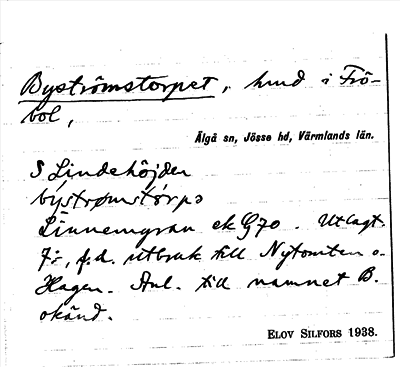 Byströmstorpet, hmd i Frö-
bol,
Älgå sn, Jösse hd, Värmlands län.
S Lindehöjden
býstrømstòrpə
Linnemyran ek G70. Utlagt.
f.d. utbruk till Nytomten o.
Hagen. Anl. till namnet B.
okänd.
ELOV SILFORS 1938.